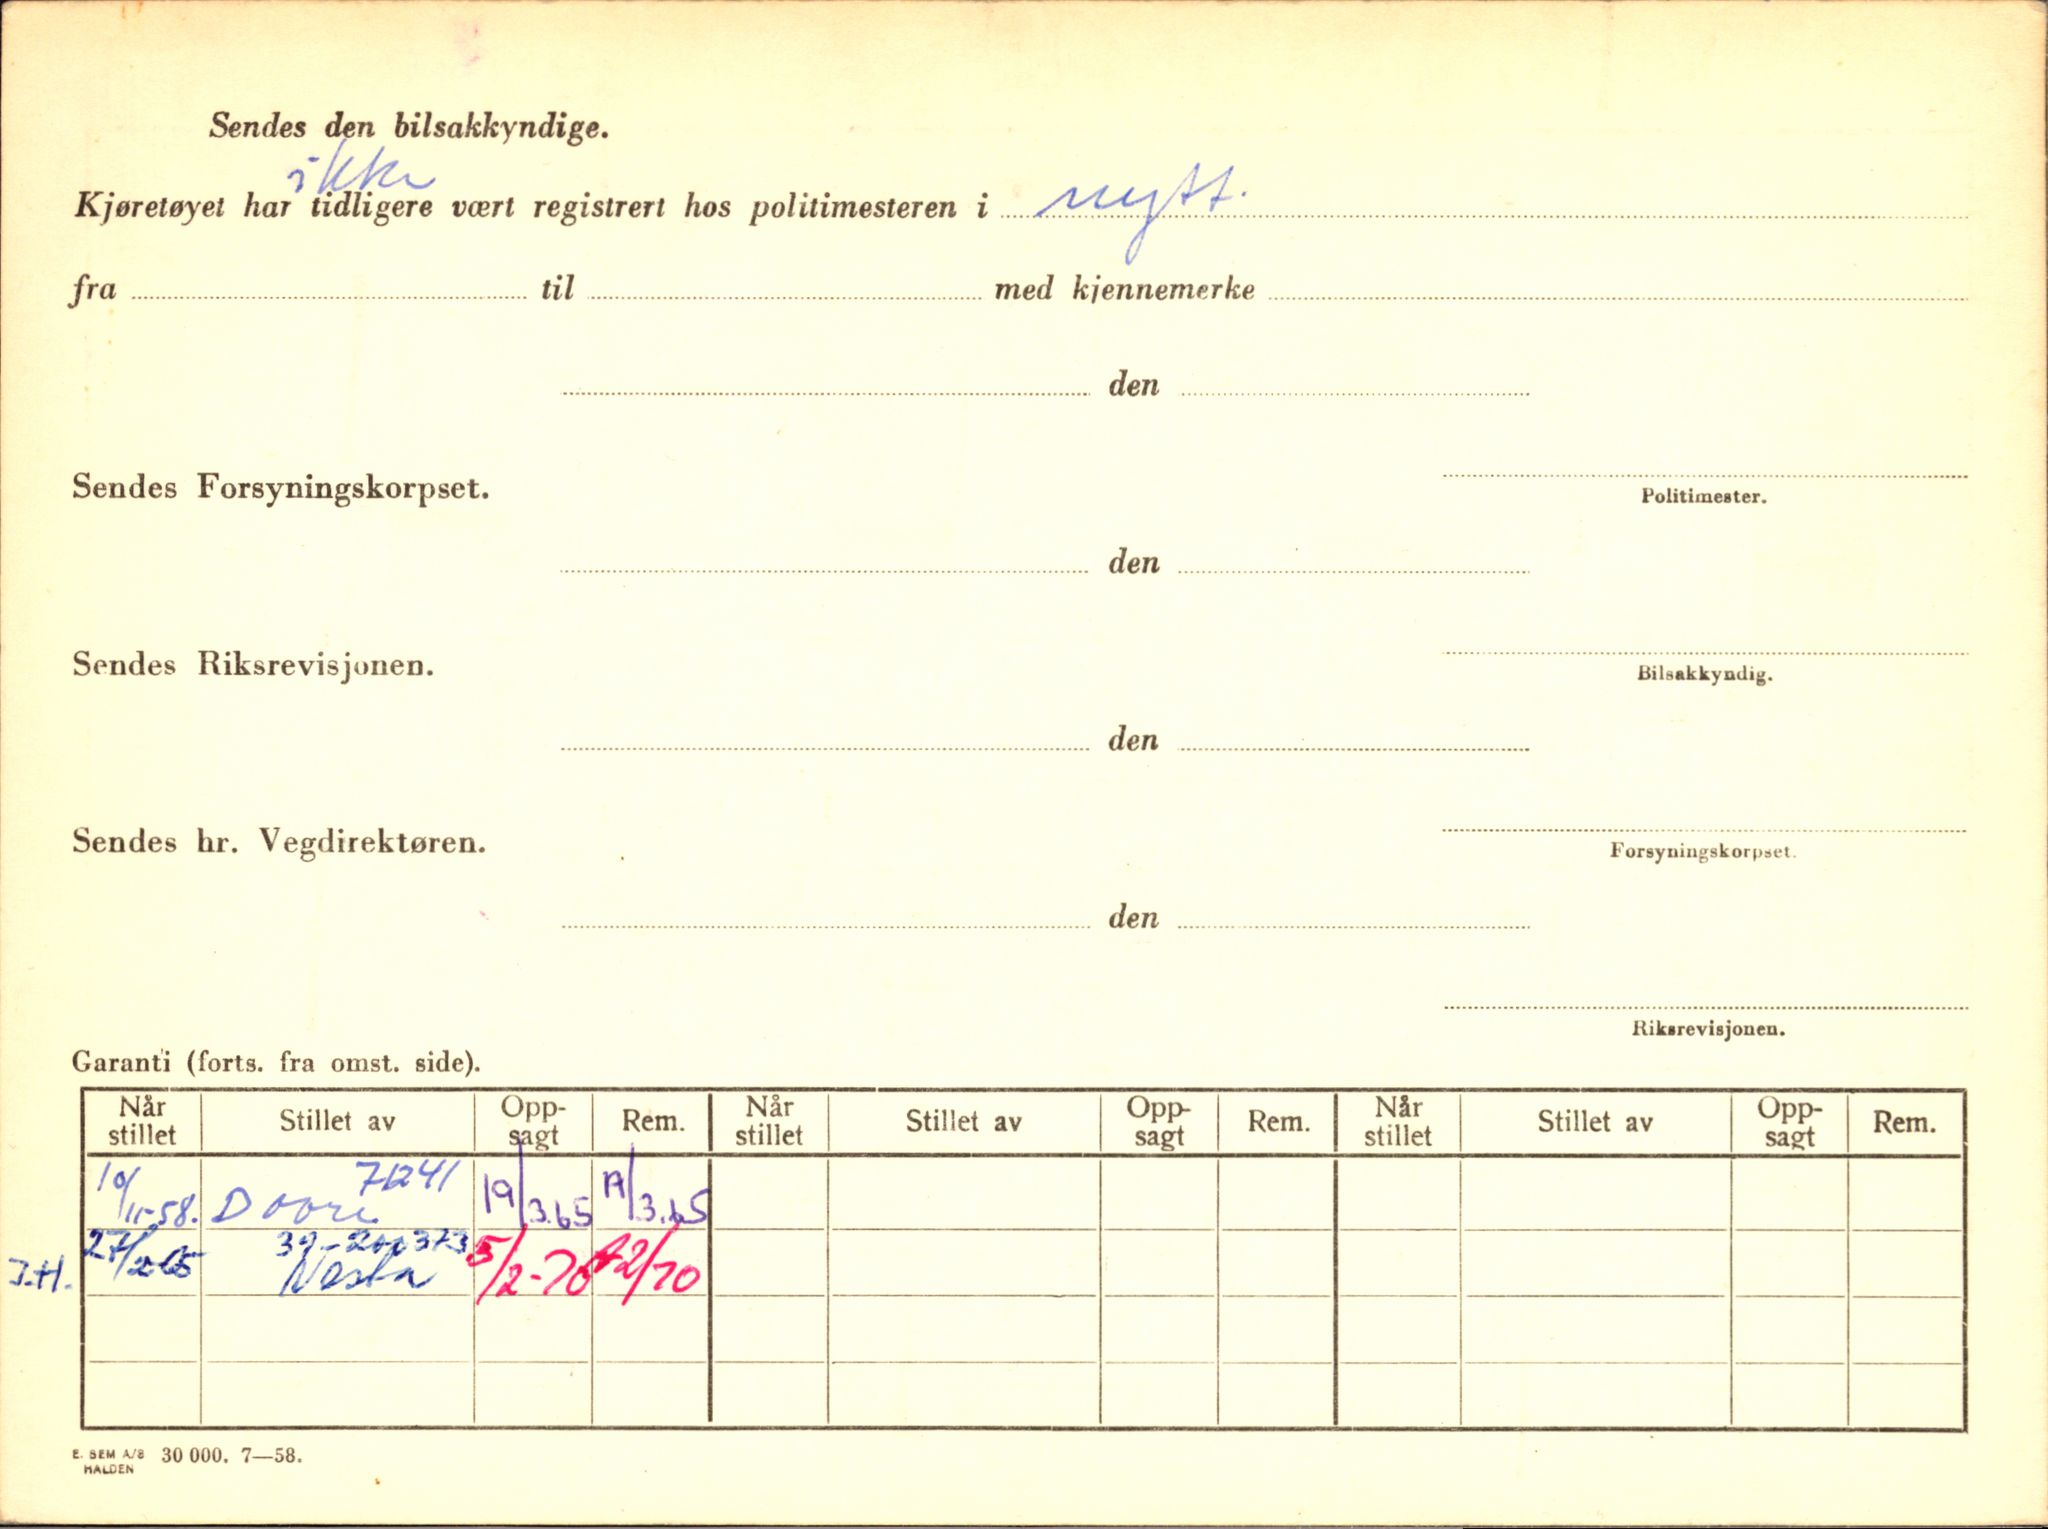 Sendes den bilsakkyndige.
ikke
Kjøretøyet har tidligere vært registrert hos politimesteren i nytt.
fra til med kjennemerke
den
Sendes Forsyningskorpset.
Politimester.
den
Sendes Riksrevisjonen.
Bilsakkyndig.
den
Sendes hr. Vegdirektøren.
Forsyningskorpset.
den
Riksrevisjonen.
Garanti (forts. fra omst. side).
Når stillet Stillet av Opp-sagt Rem. Når stillet Stillet av Opp-sagt Rem. Når stillet Stillet av Opp-sagt Rem.
10/11-58. 71241 19/3.65 19/3.65
J.H. 27/2-65 39-200373 Vesta 5/2-70 2/70
E. SEM A/S HALDEN 30 000. 7—58.